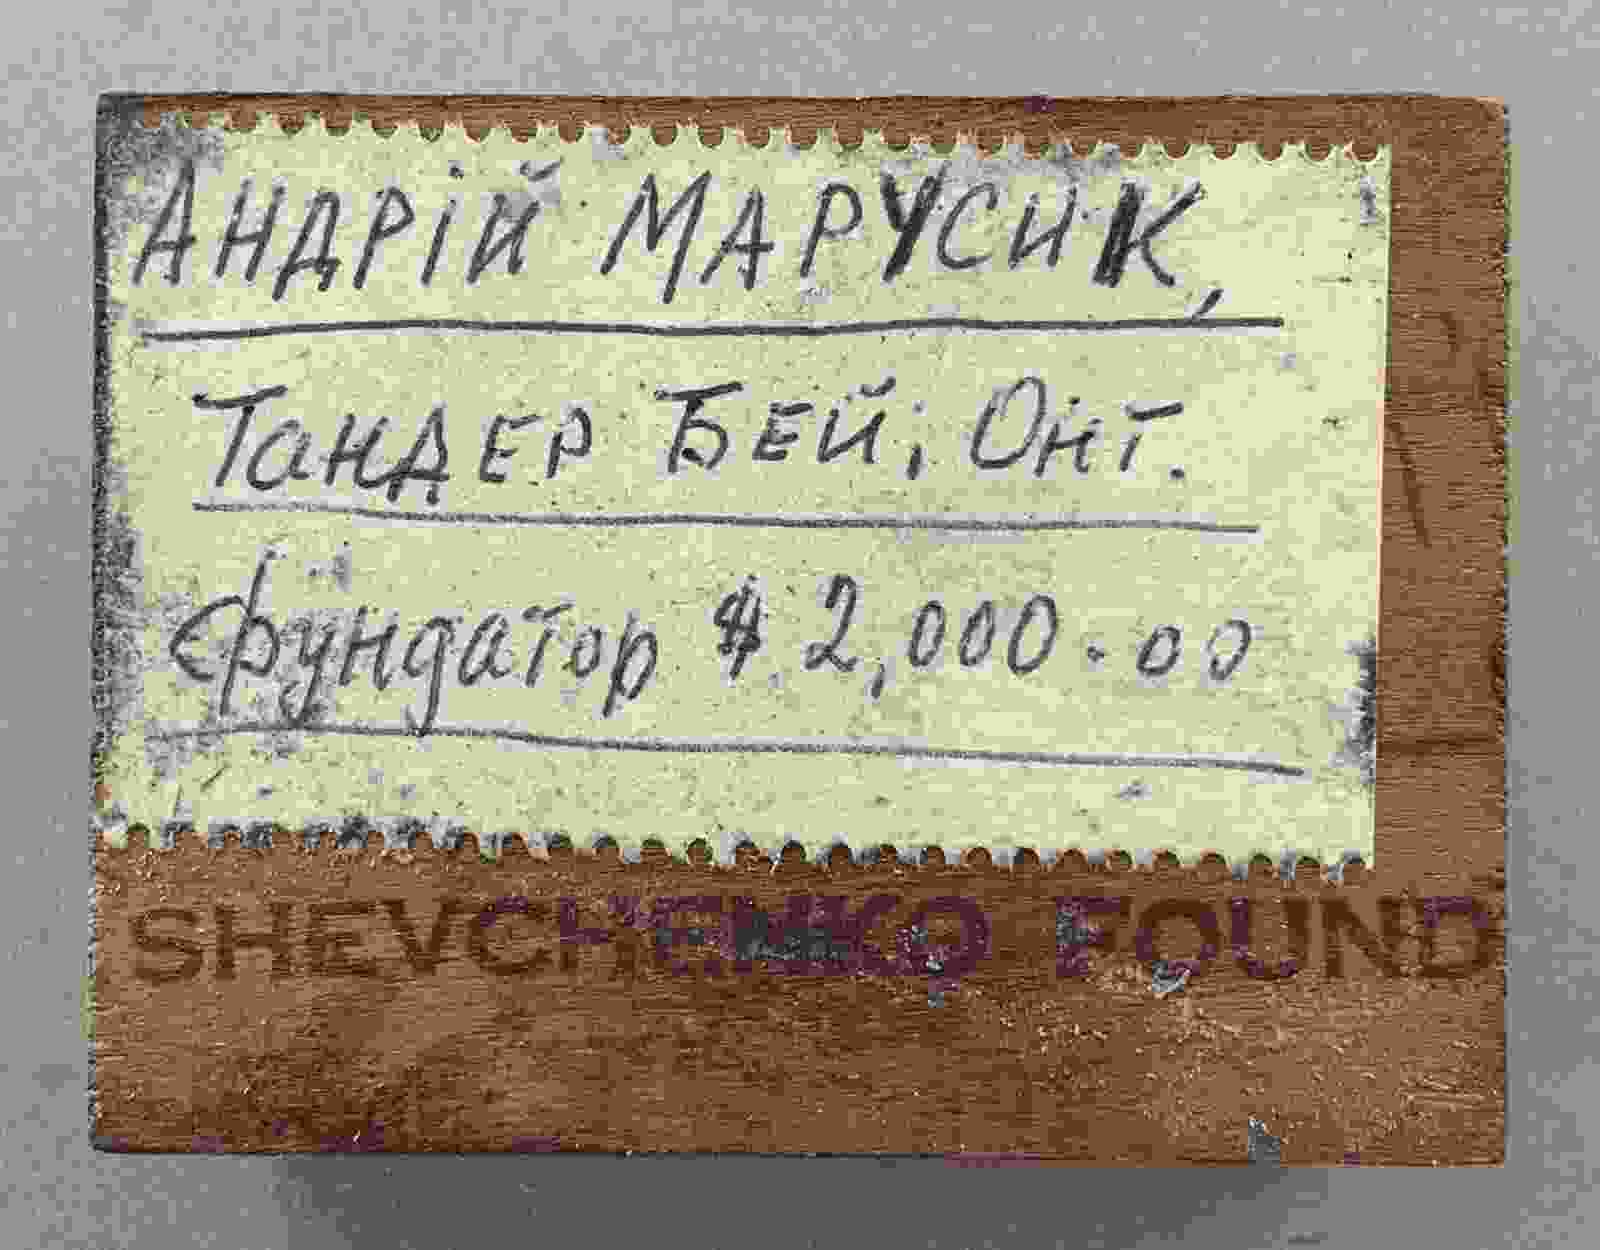 АНДРІЙ МАРУСИК,
Тандер Бей, Онт.
фундатор $2,000.00
SHEVCHENKO FOUND